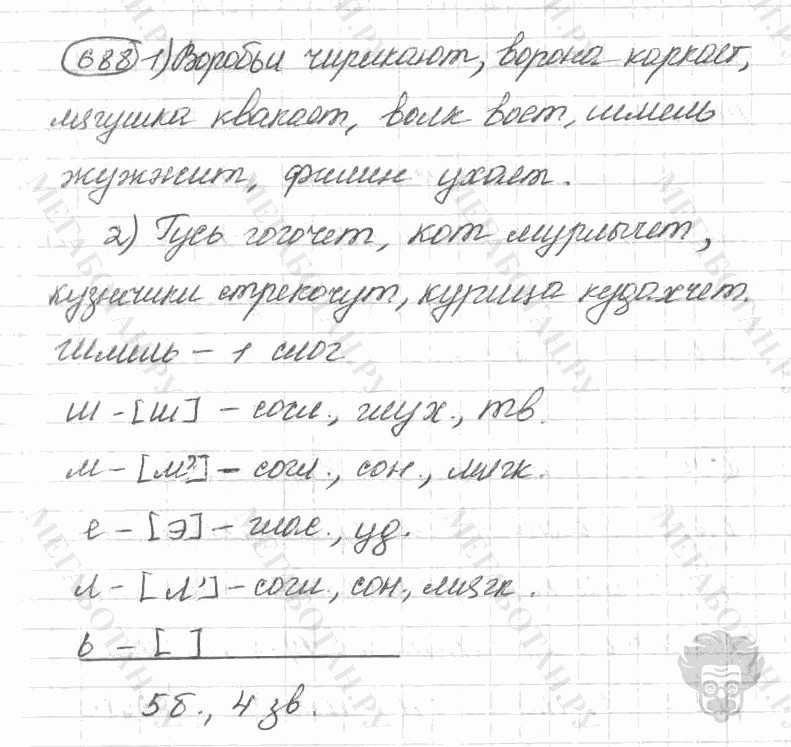 688 1) Воробьи чирикают, ворона каркает,
лягушка квакает, волк воет, шмель
жужжит, филин ухает.
2) Гусь гогочет, кот мурлычет,
кузнечики стрекочут, курица кудахчет.
Шмель – 1 слог
ш – [ш] – согл., глух., тв.
м – [м'] – согл., сон., мягк.
е – [э] – глас., уд.
л – [л'] – согл., сон., мягк.
ь – [ ]
5 б., 4 зв.
МЕГАБОТАН.РУ